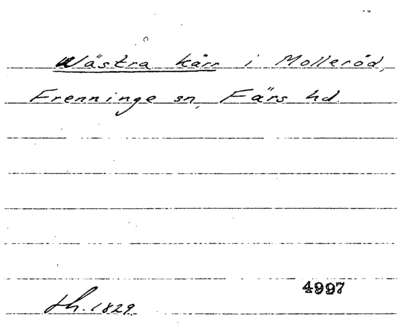 Wästra kärr i Molleröd,
Frenninge sn, Färs hd.
4997
h. 1829.